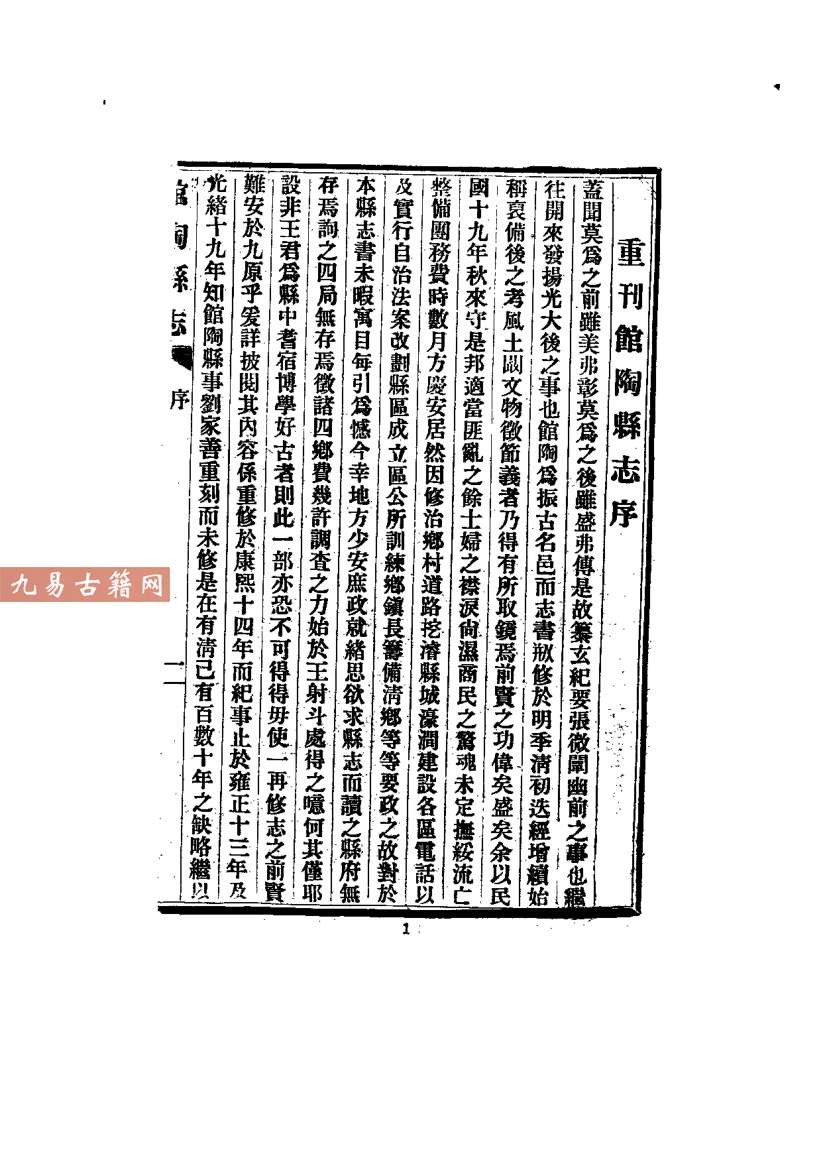 重刊館陶縣志序
蓋聞莫爲之前雖美弗彰莫爲之後雖盛弗傳是故纂玄紀要張微闡幽前之事也繼
往開來發揚光大後之事也館陶爲振古名邑而志書剏修於明季淸初迭經增續始
稱裒備後之考風土闞文物徵節義者乃得有所取鏡焉前賢之功偉矣盛矣余以民
國十九年秋來守是邦適當匪亂之餘士婦之襟淚尙濕商民之驚魂未定撫綏流亡
整備團務費時數月方慶安居然因修治鄉村道路挖濬縣城濠澗建設各區電話以
及實行自治法案改劃縣區成立區公所訓練鄉鎭長籌備淸鄉等等要政之故對於
本縣志書未暇寓目每引爲憾今幸地方少安庶政就緒思欲求縣志而讀之縣府無
存焉詢之四局無存焉徵諸四鄉費幾許調査之力始於王射斗處得之噫何其僅耶
設非王君爲縣中耆宿博學好古者則此一部亦恐不可得得毋使一再修志之前賢
難安於九原乎爰詳披閱其內容係重修於康熙十四年而紀事止於雍正十三年及
光緒十九年知館陶縣事劉家善重刻而未修是在有淸已有百數十年之缺略繼以
館陶縣志 序
一
1
九易古籍网